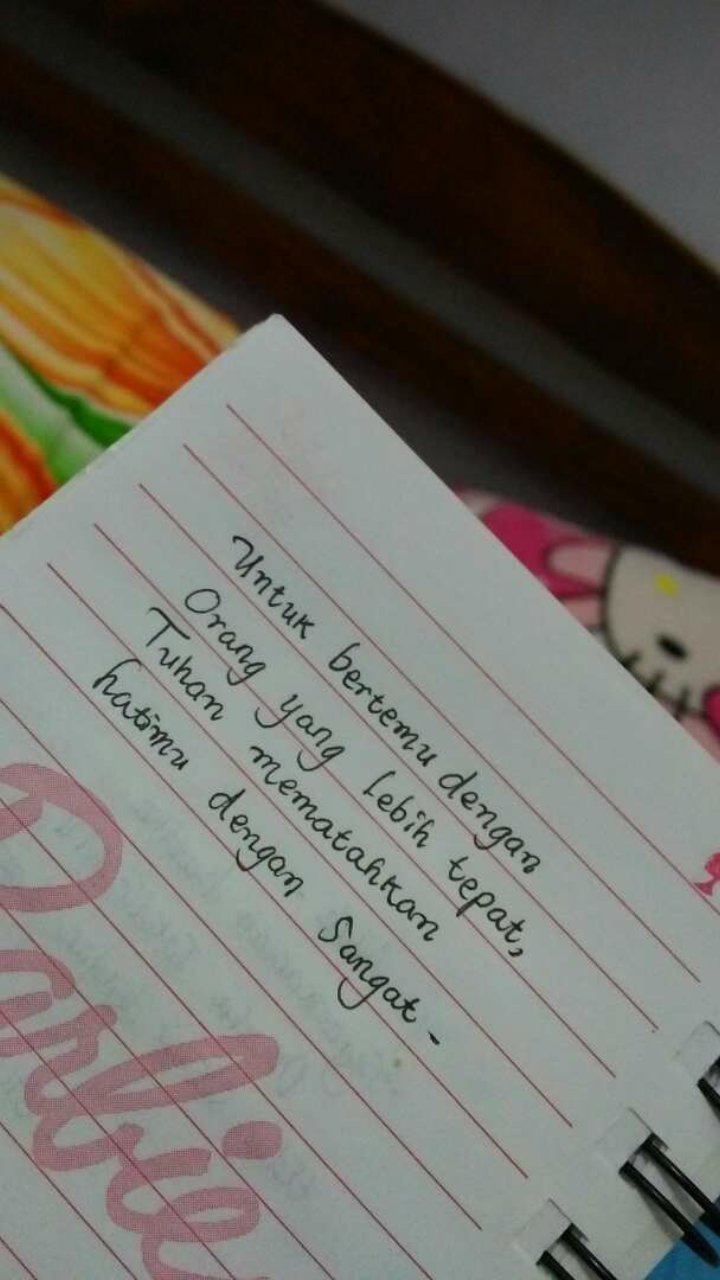 Untuk bertemu dengan
Orang yang lebih tepat,
Tuhan mematahkan
hatimu dengan Sangat -
Barbie